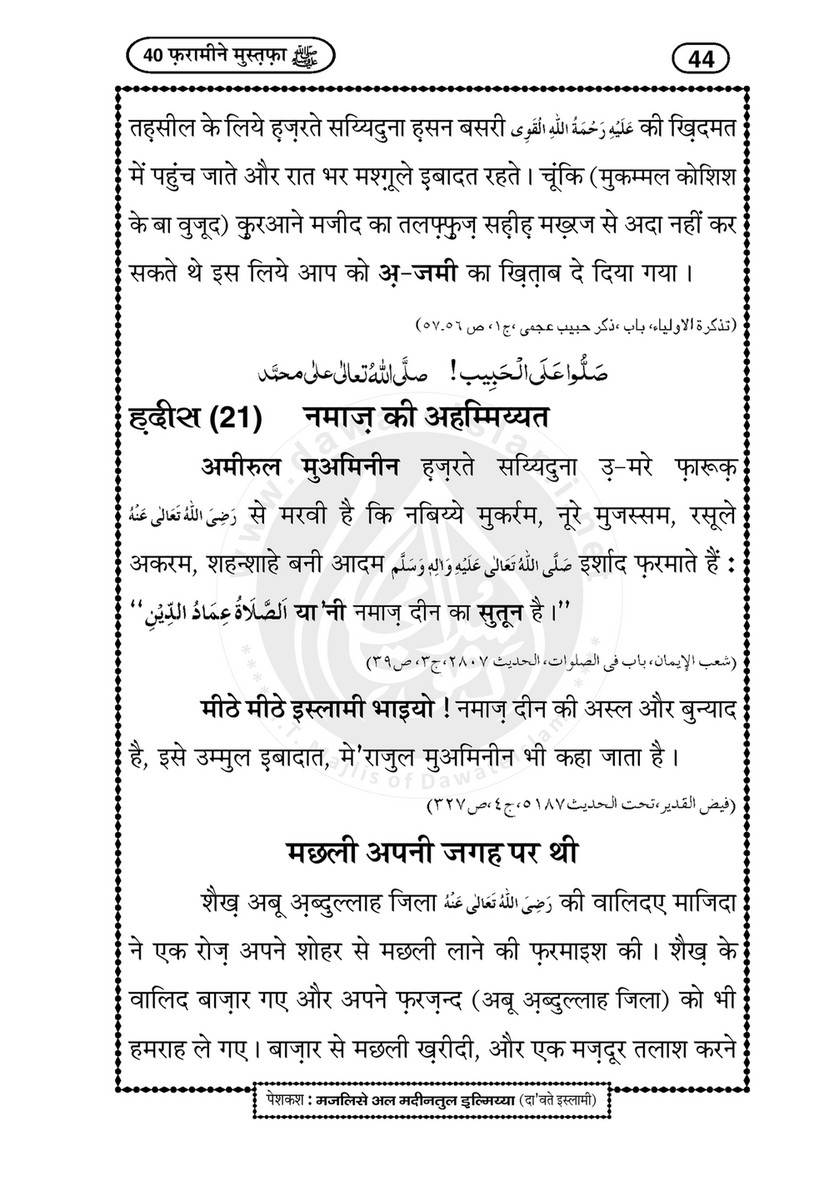 40 फ़रामीने मुस्त़फ़ा ﷺ
44
तह़सील के लिये ह़ज़रते सय्यिदुना ह़सन बसरी عَلَيْهِ رَحْمَةُ اللهِ الْقَوِى की खि़दमत
में पहुंच जाते और रात भर मश्ग़ूले इ़बादत रहते । चूंकि (मुकम्मल कोशिश
के बा वुजूद) कु़रआने मजीद का तलफ़्फ़ुज़ सह़ीह़ मख़्रज से अदा नहीं कर
सकते थे इस लिये आप को अ़-जमी का खि़त़ाब दे दिया गया ।
(تذكرة الاولياء، باب ،ذكر حبيب عجمى ،ج١، ص ٥٦ـ٥٧)
صَلُّوا عَلَى الْحَبِيب! صلَّى اللهُ تعالىٰ على محمَّد
ह़दीस (21) नमाज़ की अहम्मिय्यत
अमीरुल मुअमिनीन ह़ज़रते सय्यिदुना उ़-मरे फ़ारूक़
رَضِىَ اللهُ تَعَالٰى عَنْهُ से मरवी है कि नबिय्ये मुकर्रम, नूरे मुजस्सम, रसूले
अकरम, शहन्शाहे बनी आदम صَلَّى اللهُ تَعَالٰى عَلَيْهِ وَاٰلِهٖ وَسَلَّم इर्शाद फ़रमाते हैं :
“اَلصَّلَاةُ عِمَادُ الدِّيْنِ या'नी नमाज़ दीन का सुतून है ।”
(شعب الإيمان، باب فى الصلوات، الحديث ٢٨٠٧، ج٣، ص٣٩)
मीठे मीठे इस्लामी भाइयो ! नमाज़ दीन की अस्ल और बुन्याद
है, इसे उम्मुल इ़बादात, मे'राजुल मुअमिनीन भी कहा जाता है ।
(فيض القدير،تحت الحديث٥١٨٧،ج٤،ص٣٢٧)
मछली अपनी जगह पर थी
शैख़ अबू अ़ब्दुल्लाह जिला رَضِىَ اللهُ تَعَالٰى عَنْهُ की वालिदए माजिदा
ने एक रोज़ अपने शोहर से मछली लाने की फ़रमाइश की । शैख़ के
वालिद बाज़ार गए और अपने फ़रज़न्द (अबू अ़ब्दुल्लाह जिला) को भी
हमराह ले गए । बाज़ार से मछली ख़रीदी, और एक मज़दूर तलाश करने
पेशकश : मजलिसे अल मदीनतुल इ़ल्मिय्या (दा'वते इस्लामी)
www.dawateislami.net
I.T. Majlis of DawateIslami